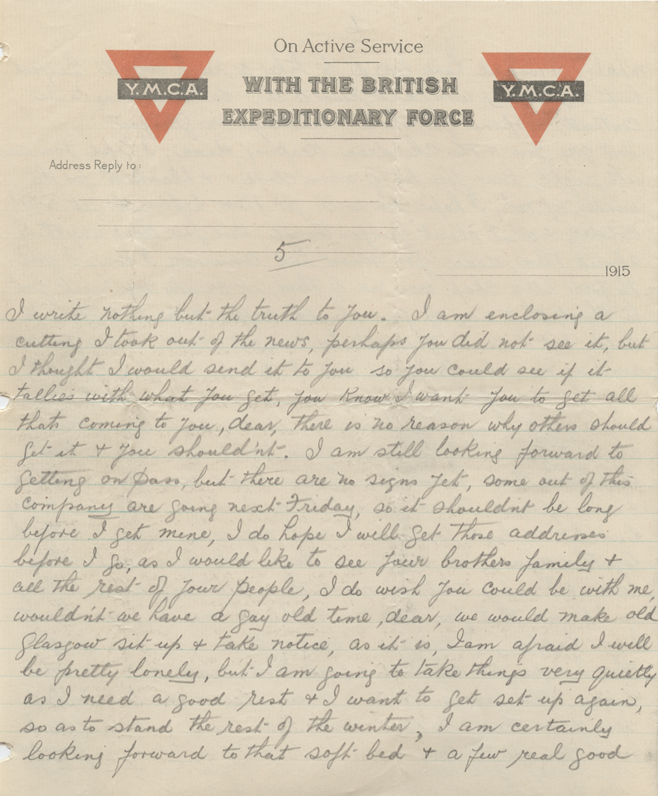 On Active Service
Y.M.C.A.
WITH THE BRITISH
EXPEDITIONARY FORCE
Y.M.C.A.
Address Reply to:
5
1915
I write nothing but the truth to you. I am enclosing a
cutting I took out of the news, perhaps you did not see it, but
I thought I would send it to you so you could see if it
tallies with what you get, you know I want you to get all
thats coming to you, dear, there is no reason why others should
get it & you should'nt. I am still looking forward to
getting on pass, but there are no signs yet, some out of this
company are going next Friday, so it shouldnt be long
before I get mine, I do hope I will get those addresses
before I go, as I would like to see your brothers family &
all the rest of your people, I do wish you could be with me,
wouldn't we have a gay old time, dear, we would make old
Glasgow sit up & take notice, as it is, I am afraid I will
be pretty lonely, but I am going to take things very quietly
as I need a good rest & I want to get set up again,
so as to stand the rest of the winter, I am certainly
looking forward to that soft bed & a few real good